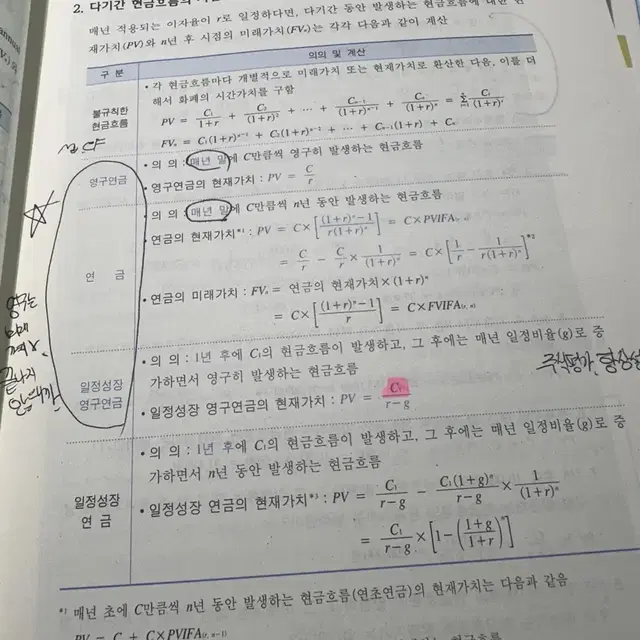 2. 다기간 현금흐름의
매년 적용되는 이자율이 r로 일정하다면, 다기간 동안 발생하는 현금흐름에 대한 현
재가치(PV)와 n년 후 시점의 미래가치(FVₙ)는 각각 다음과 같이 계산
구 분 의의 및 계산
불규칙한
현금흐름
• 각 현금흐름마다 개별적으로 미래가치 또는 현재가치로 환산한 다음, 이를 더
해서 화폐의 시간가치를 구함
PV = C₁/(1+r) + C₂/(1+r)² + ⋯ + Cₙ₋₁/(1+r)ⁿ⁻¹ + Cₙ/(1+r)ⁿ = Σ Cₜ/(1+r)ᵗ
FVₙ = C₁(1+r)ⁿ⁻¹ + C₂(1+r)ⁿ⁻² + ⋯ + Cₙ₋₁(1+r) + Cₙ
영구연금
• 의 의 : 매년 말에 C만큼씩 영구히 발생하는 현금흐름
• 영구연금의 현재가치 : PV = C/r
연 금
• 의 의 : 매년 말에 C만큼씩 n년 동안 발생하는 현금흐름
• 연금의 현재가치*¹ : PV = C×[((1+r)ⁿ−1)/(r(1+r)ⁿ)] = C×PVIFA₍ᵣ, ₙ₎
= C/r − C/r × 1/(1+r)ⁿ = C×[1/r − 1/(r(1+r)ⁿ)]*²
• 연금의 미래가치 : FVₙ = 연금의 현재가치×(1+r)ⁿ
= C×[((1+r)ⁿ−1)/r] = C×FVIFA₍ᵣ, ₙ₎
영구는
끝나지
일정성장
영구연금
• 의 의 : 1년 후에 C₁의 현금흐름이 발생하고, 그 후에는 매년 일정비율(g)로 증
가하면서 영구히 발생하는 현금흐름
주식평가, 항상성
• 일정성장 영구연금의 현재가치 : PV = C₁/(r−g)
일정성장
연 금
• 의 의 : 1년 후에 C₁의 현금흐름이 발생하고, 그 후에는 매년 일정비율(g)로 증
가하면서 n년 동안 발생하는 현금흐름
• 일정성장 연금의 현재가치*³ : PV = C₁/(r−g) − C₁(1+g)ⁿ/(r−g) × 1/(1+r)ⁿ
= C₁/(r−g) × [1−((1+g)/(1+r))ⁿ]
*¹ 매년 초에 C만큼씩 n년 동안 발생하는 현금흐름(연초연금)의 현재가치는 다음과 같음
PV = C + C×PVIFA₍ᵣ, ₙ₋₁₎